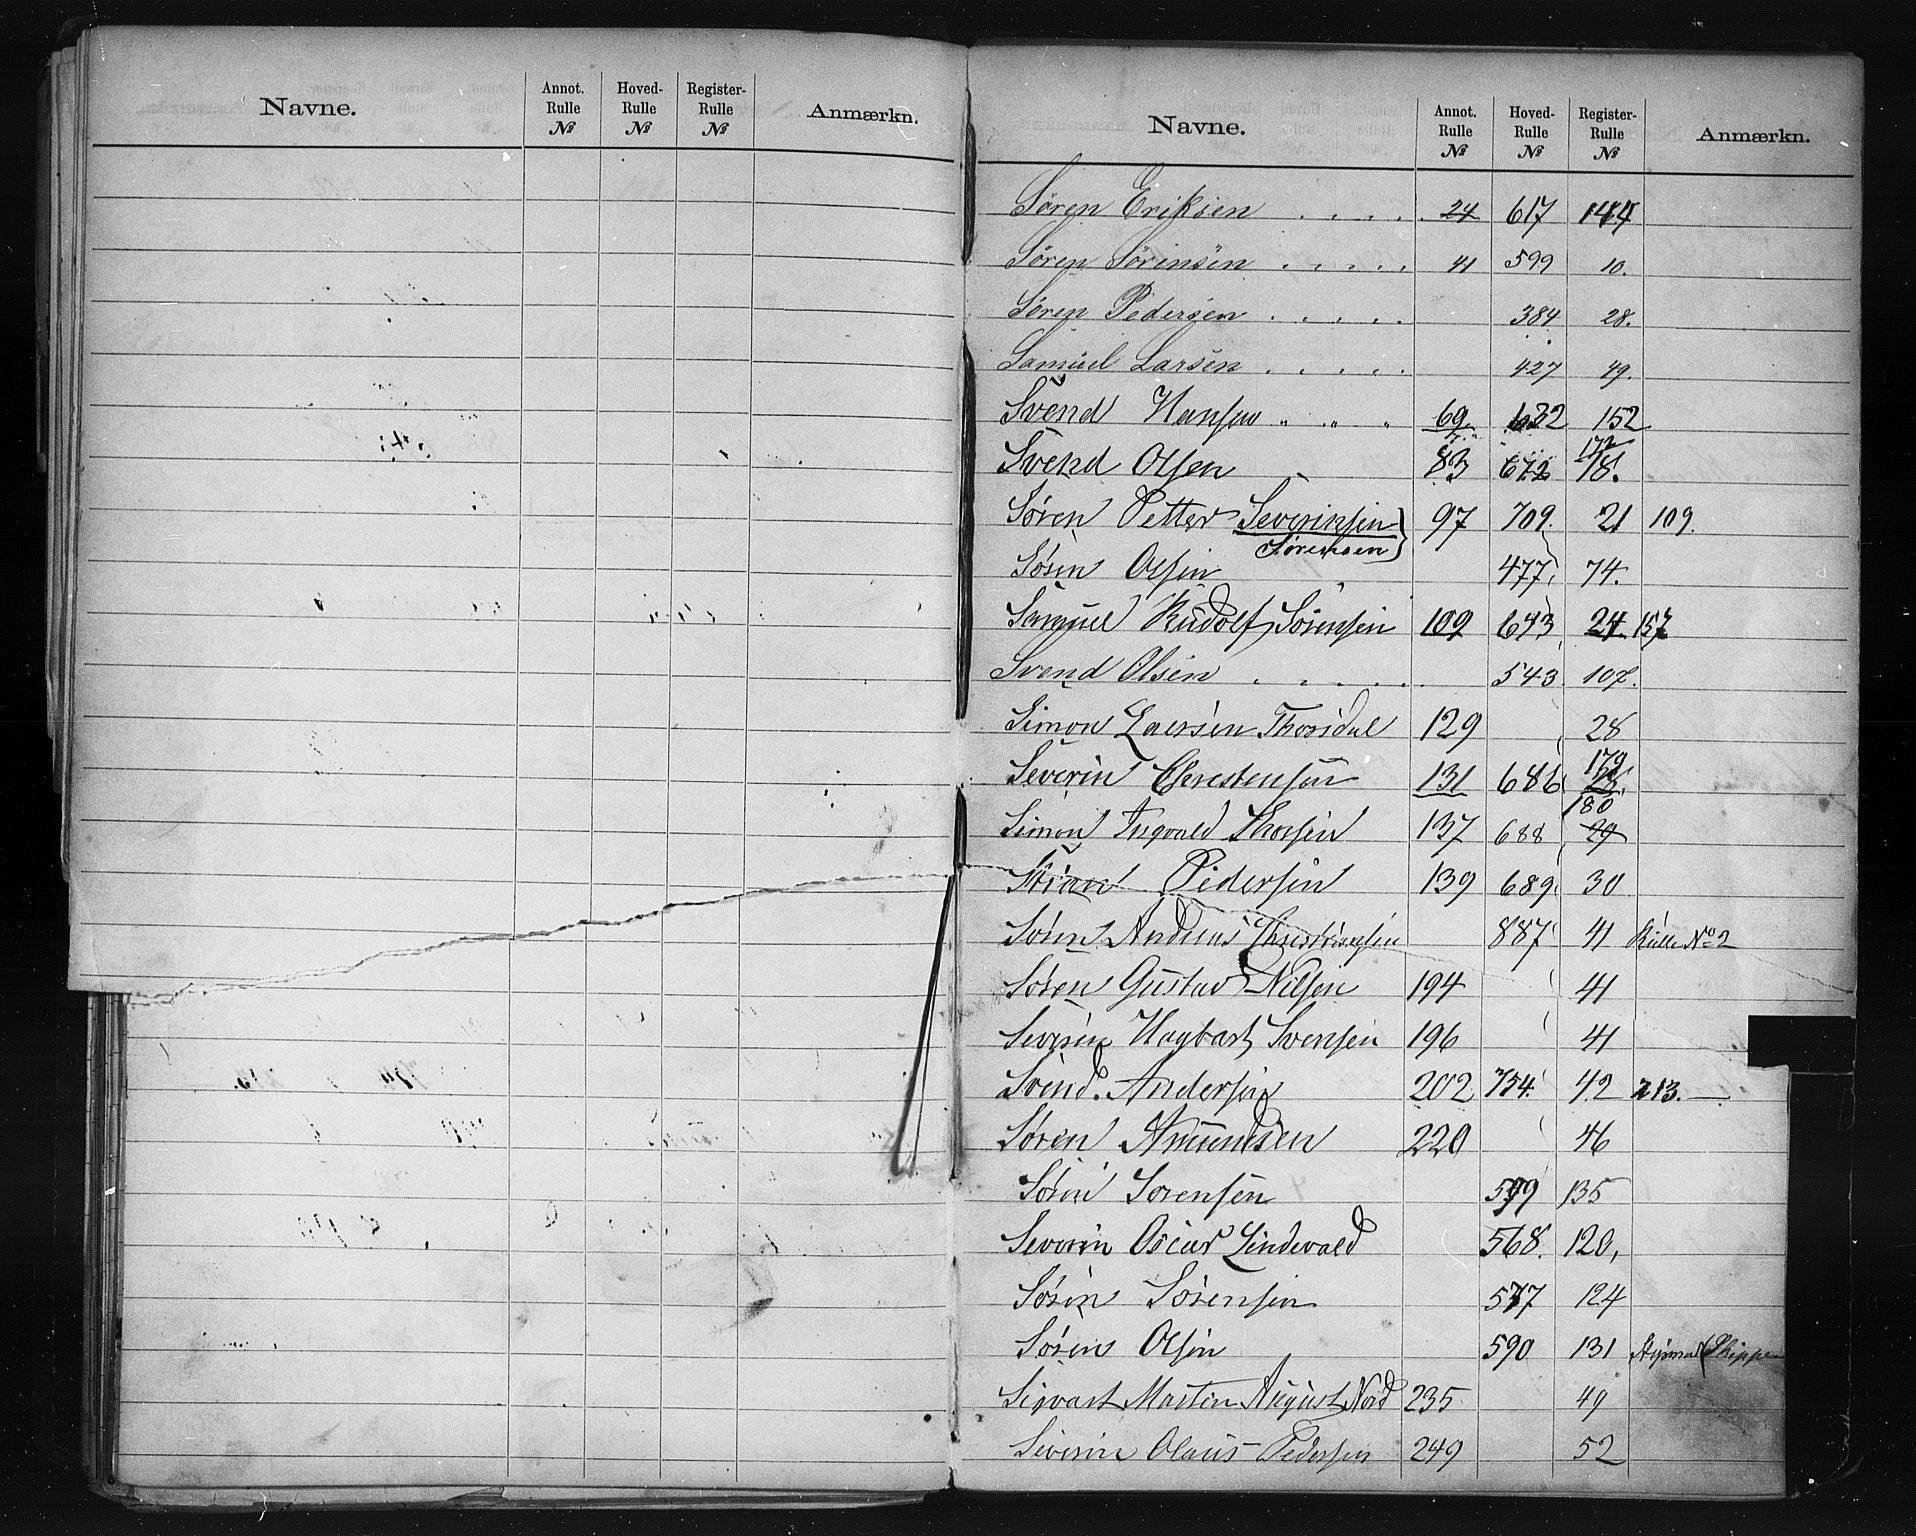 Navne. Annot. Rulle № Hoved- Rulle № Register- Rulle № Anmærkn.
Navne. Annot. Rulle № Hoved- Rulle № Register- Rulle № Anmærkn.
Søren Eriksen . . . . . 24 617 144
Søren Sørensen . . . . . 41 599 10.
Søren Pedersen . . . . . 384 28.
Samuel Larsen . . . . . 427 49.
Svend Hansen „ „ „ 69 632 152
172
Svend Olsen 83 672 18.
Søren Petter Severinsen 97 709. 21 109.
Sørensen
Søren Olsen 477 74.
Samuel Rudolf Sørensen 109 643 24 157
Svend Olsen . . . . . 543 107.
Simon Laersen Thorsdal 129 28
179
Severin Chrestensen 131 686
180
Simon Ingvald Thorsen 137 688 29
Stian Pedersen 139 689 30
Søren Andreas Christensen 887 41 Rulle No 2
Søren Gustav Nilsen 194 41
Severin Hagbart Svensen 196 41
Svend. Andersen 202 754. 42 213. —
Søren Amundsen 220 46
Søren Sorensen 599 135
Severin Oscar Lindevald 568. 120,
Søren Sørensen 577 124
Søren Olsen 590 131 Skipper
Sigvart Martin August Nord 235 49
Severin Olaus Pedersen 249 52